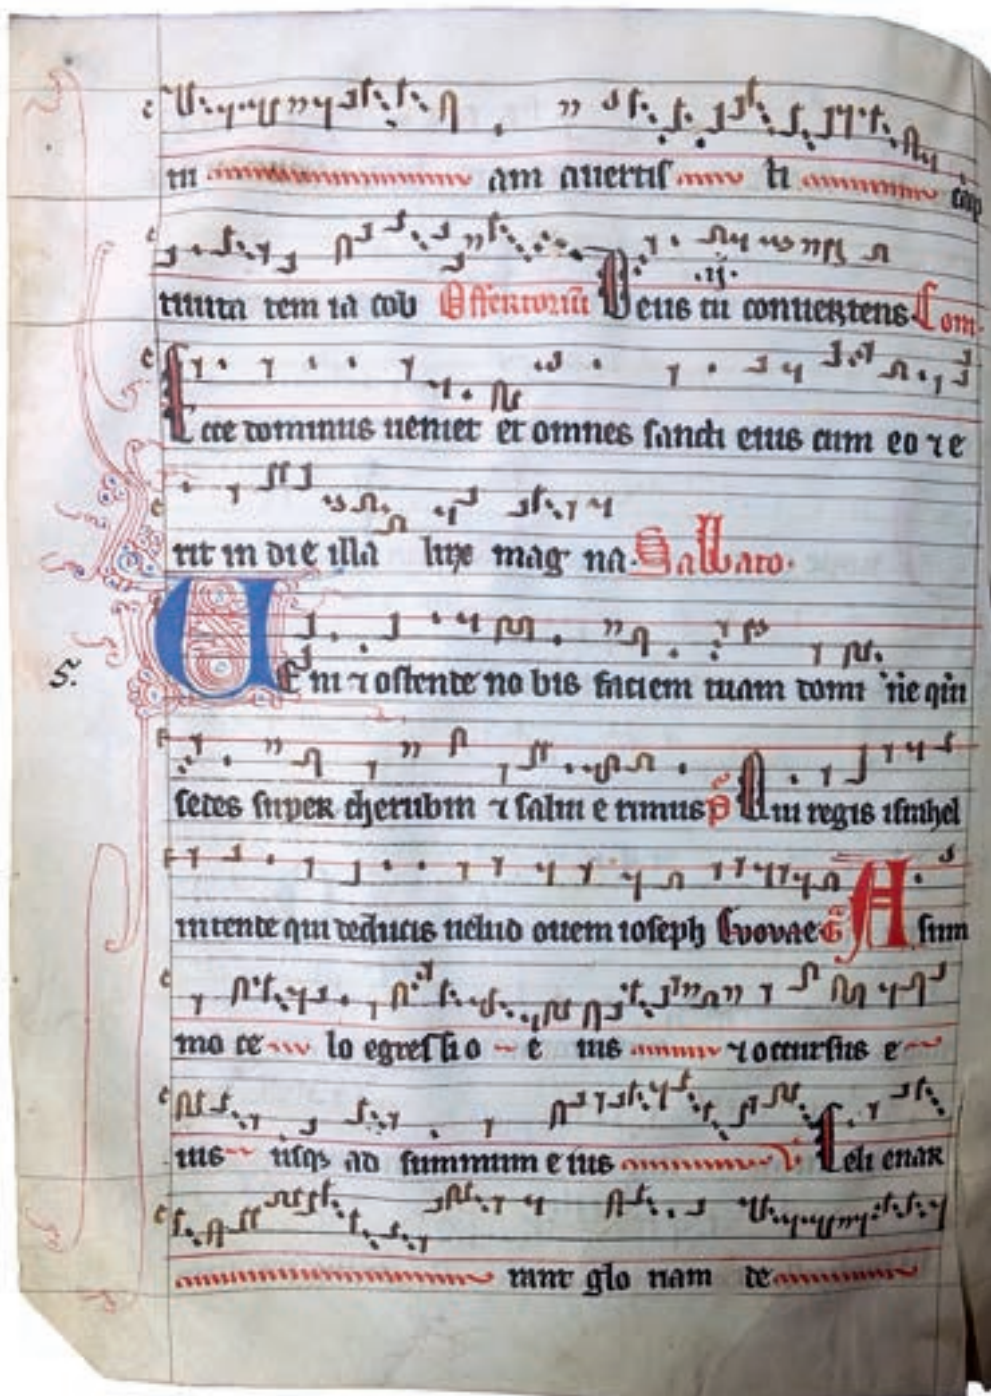 in am auertis ti cap
tiuita tem ia cob Offertoriū Deus tu conuertens Com.
.ij.
Ecce dominus ueniet et omnes sancti eius cum eo ⁊ e
rit in die illa lux mag na. Sabbato.
5.
UEni ⁊ ostende no bis faciem tuam domi ne qui
sedes super cherubin ⁊ salui e rimus p̄s Qui regis israhel
intende qui deducis uelud ouem ioseph Evovae G̃ A sum
mo ce lo egressi o e ius ⁊ occursus e
ius usqꝫ ad summum e ius v̇ Celi enar
rant glo riam de